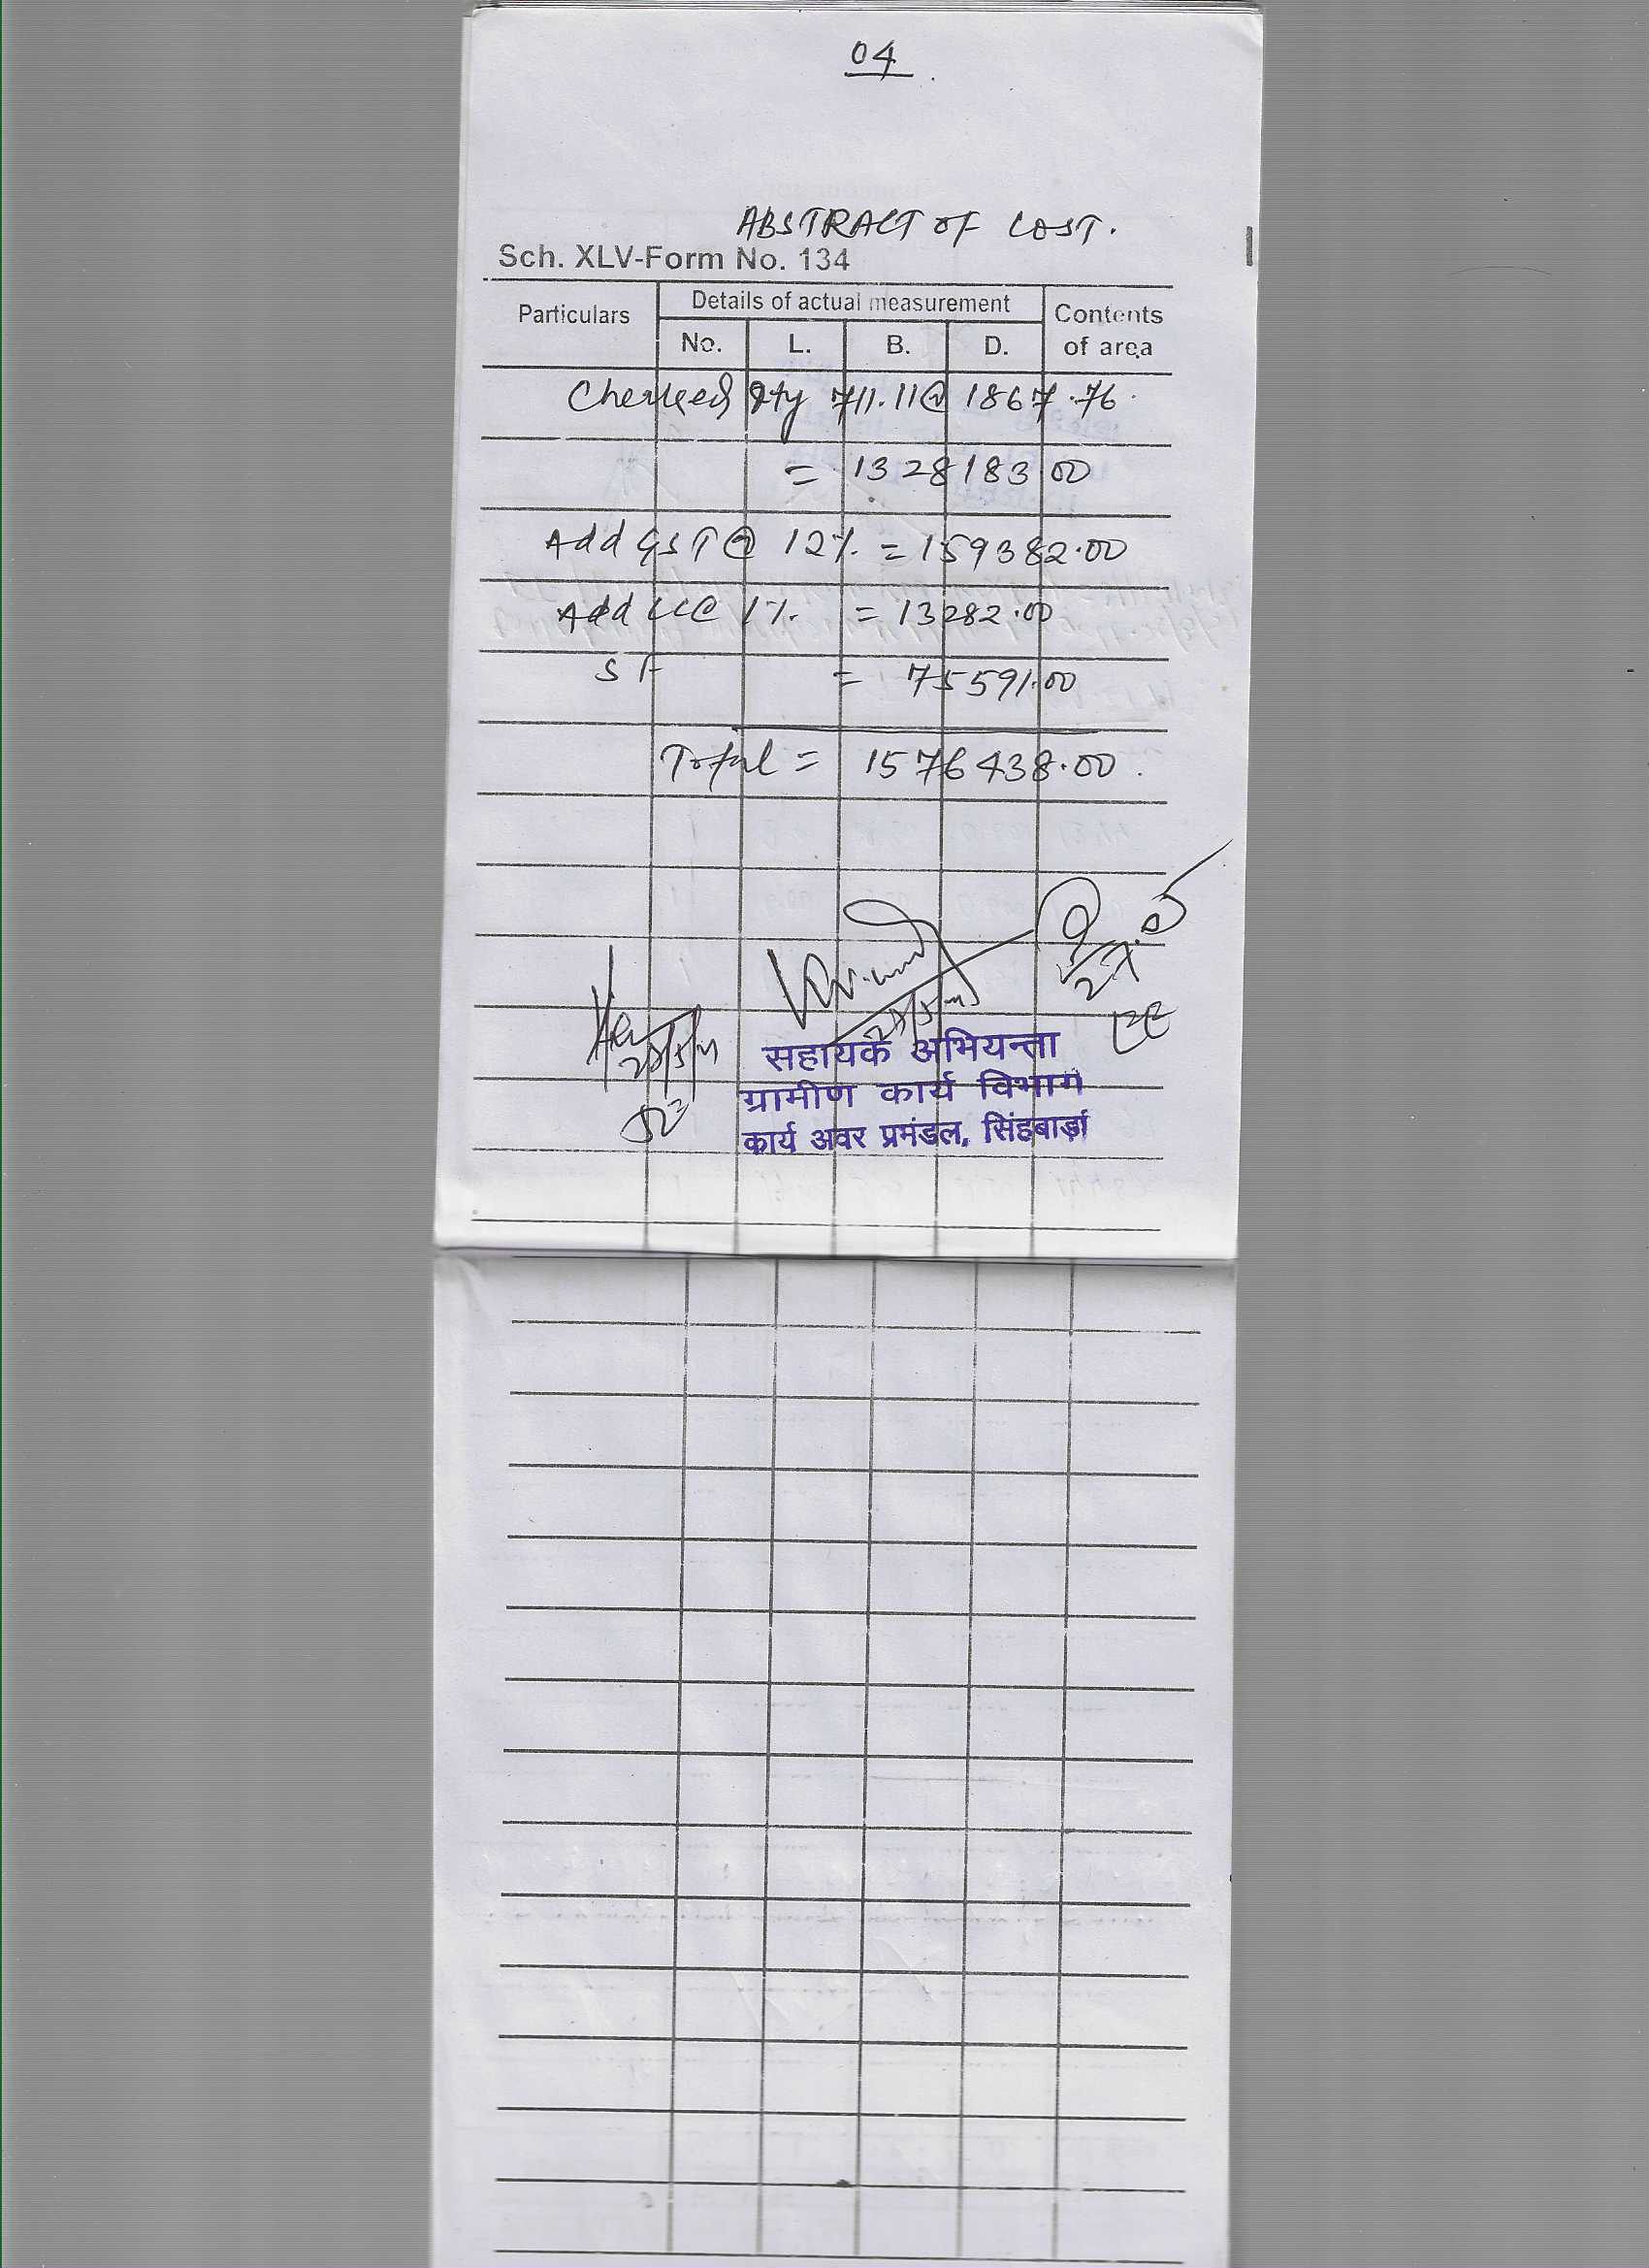 04
ABSTRACT OF COST.
Sch. XLV-Form No. 134
Particulars Details of actual measurement Contents of area
No. L. B. D.
Checked Qty 711.11@ 1867.76
= 1328183.00
Add GST @ 12% = 159382.00
Add LLC 1% = 13282.00
SF = 75591.00
Total = 1576438.00
सहायक अभियन्ता
ग्रामीण कार्य विभाग
कार्य अवर प्रमंडल, सिंहबाड़ा